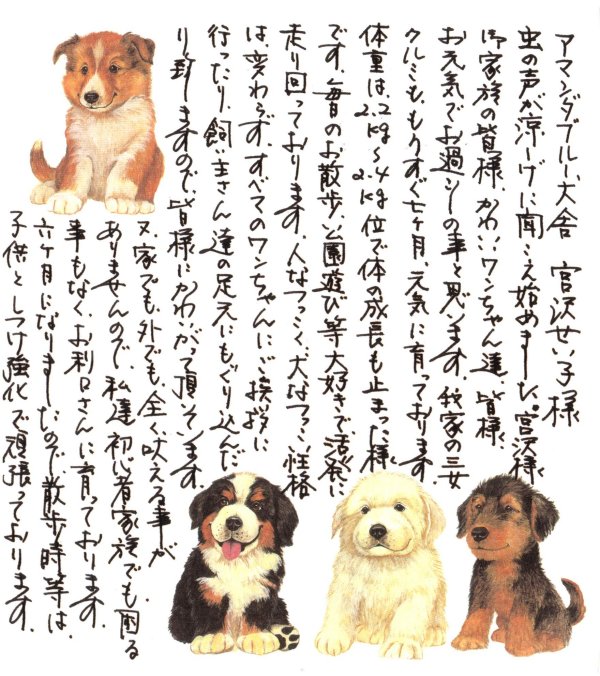 アマンダブルー犬舎 宮沢せい子様
虫の声が涼しげに聞こえ始めました。宮沢様
御家族の皆様、かわいいワンちゃん達、皆様、
お元気でお過ごしの事と思います。我家の三女
クルミも、もうすぐ七ヶ月、元気に育っております
体重は、2.2kg～2.4kg位で体の成長も止まった様
です。毎日のお散歩、公園遊び等大好きで活発に
走り回っております。人なつっこく、犬なつっこい性格
は、変わらず、すべてのワンちゃんにご挨拶に
行ったり、飼い主さん達の足元にもぐり込んだ
り致しますので、皆様にかわいがって頂いています。
又、家でも、外でも、全く吠える事が
ありませんので、私達初心者家族でも困る
事もなく、お利口さんに育っております。
六ヶ月になりましたので、散歩時等は、
子供としつけ強化で頑張っております。